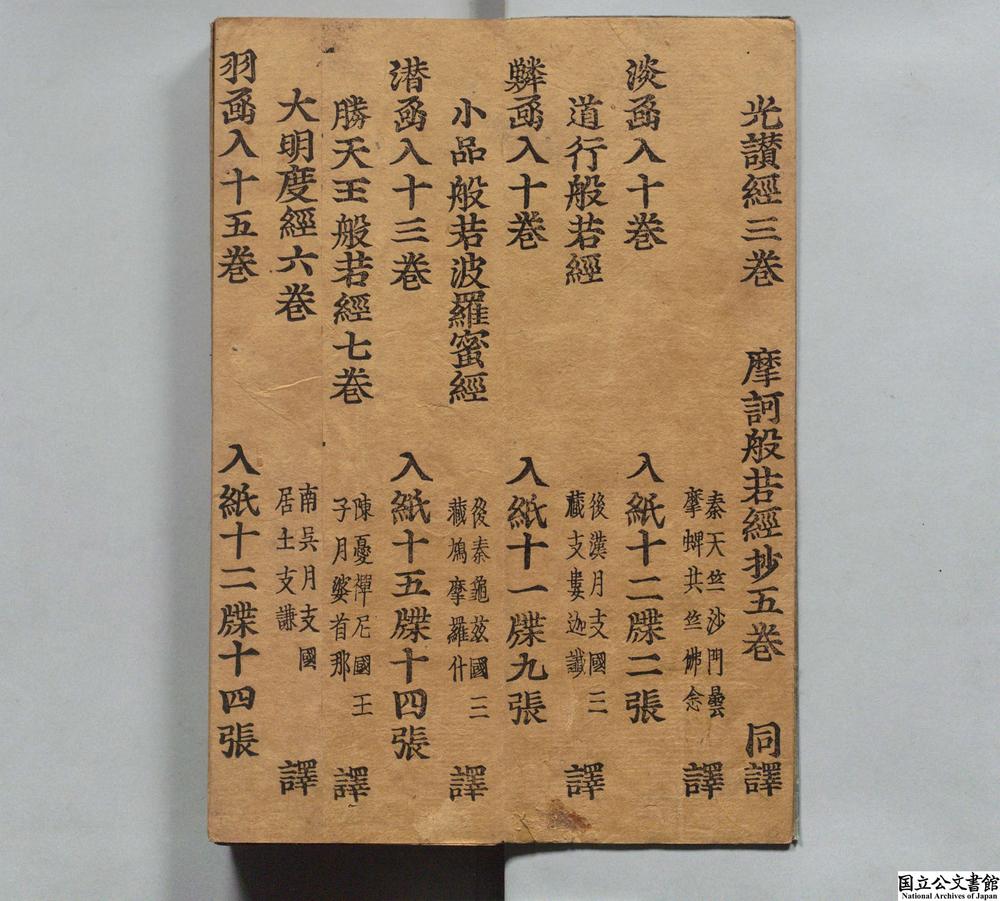 光讃經三卷 摩訶般若經抄五卷 同譯
秦天竺沙門曇
摩蜱共竺佛念 譯
淡函入十卷 入紙十二牒二張
道行般若經 後漢月支國三
藏支婁迦讖 譯
鱗函入十卷 入紙十一牒九張
小品般若波羅蜜經 後秦龜茲國三
藏鳩摩羅什 譯
潜函入十三卷 入紙十五牒十四張
勝天王般若經七卷 陳憂禪尼國王
子月婆首那 譯
大明度經六卷 南吳月支國
居士支謙 譯
羽函入十五卷 入紙十二牒十四張
国立公文書館
National Archives of Japan